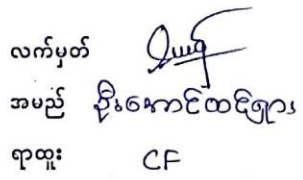 လက်မှတ်
အမည် ဦးအောင်ထင်ရှား
ရာထူး CF